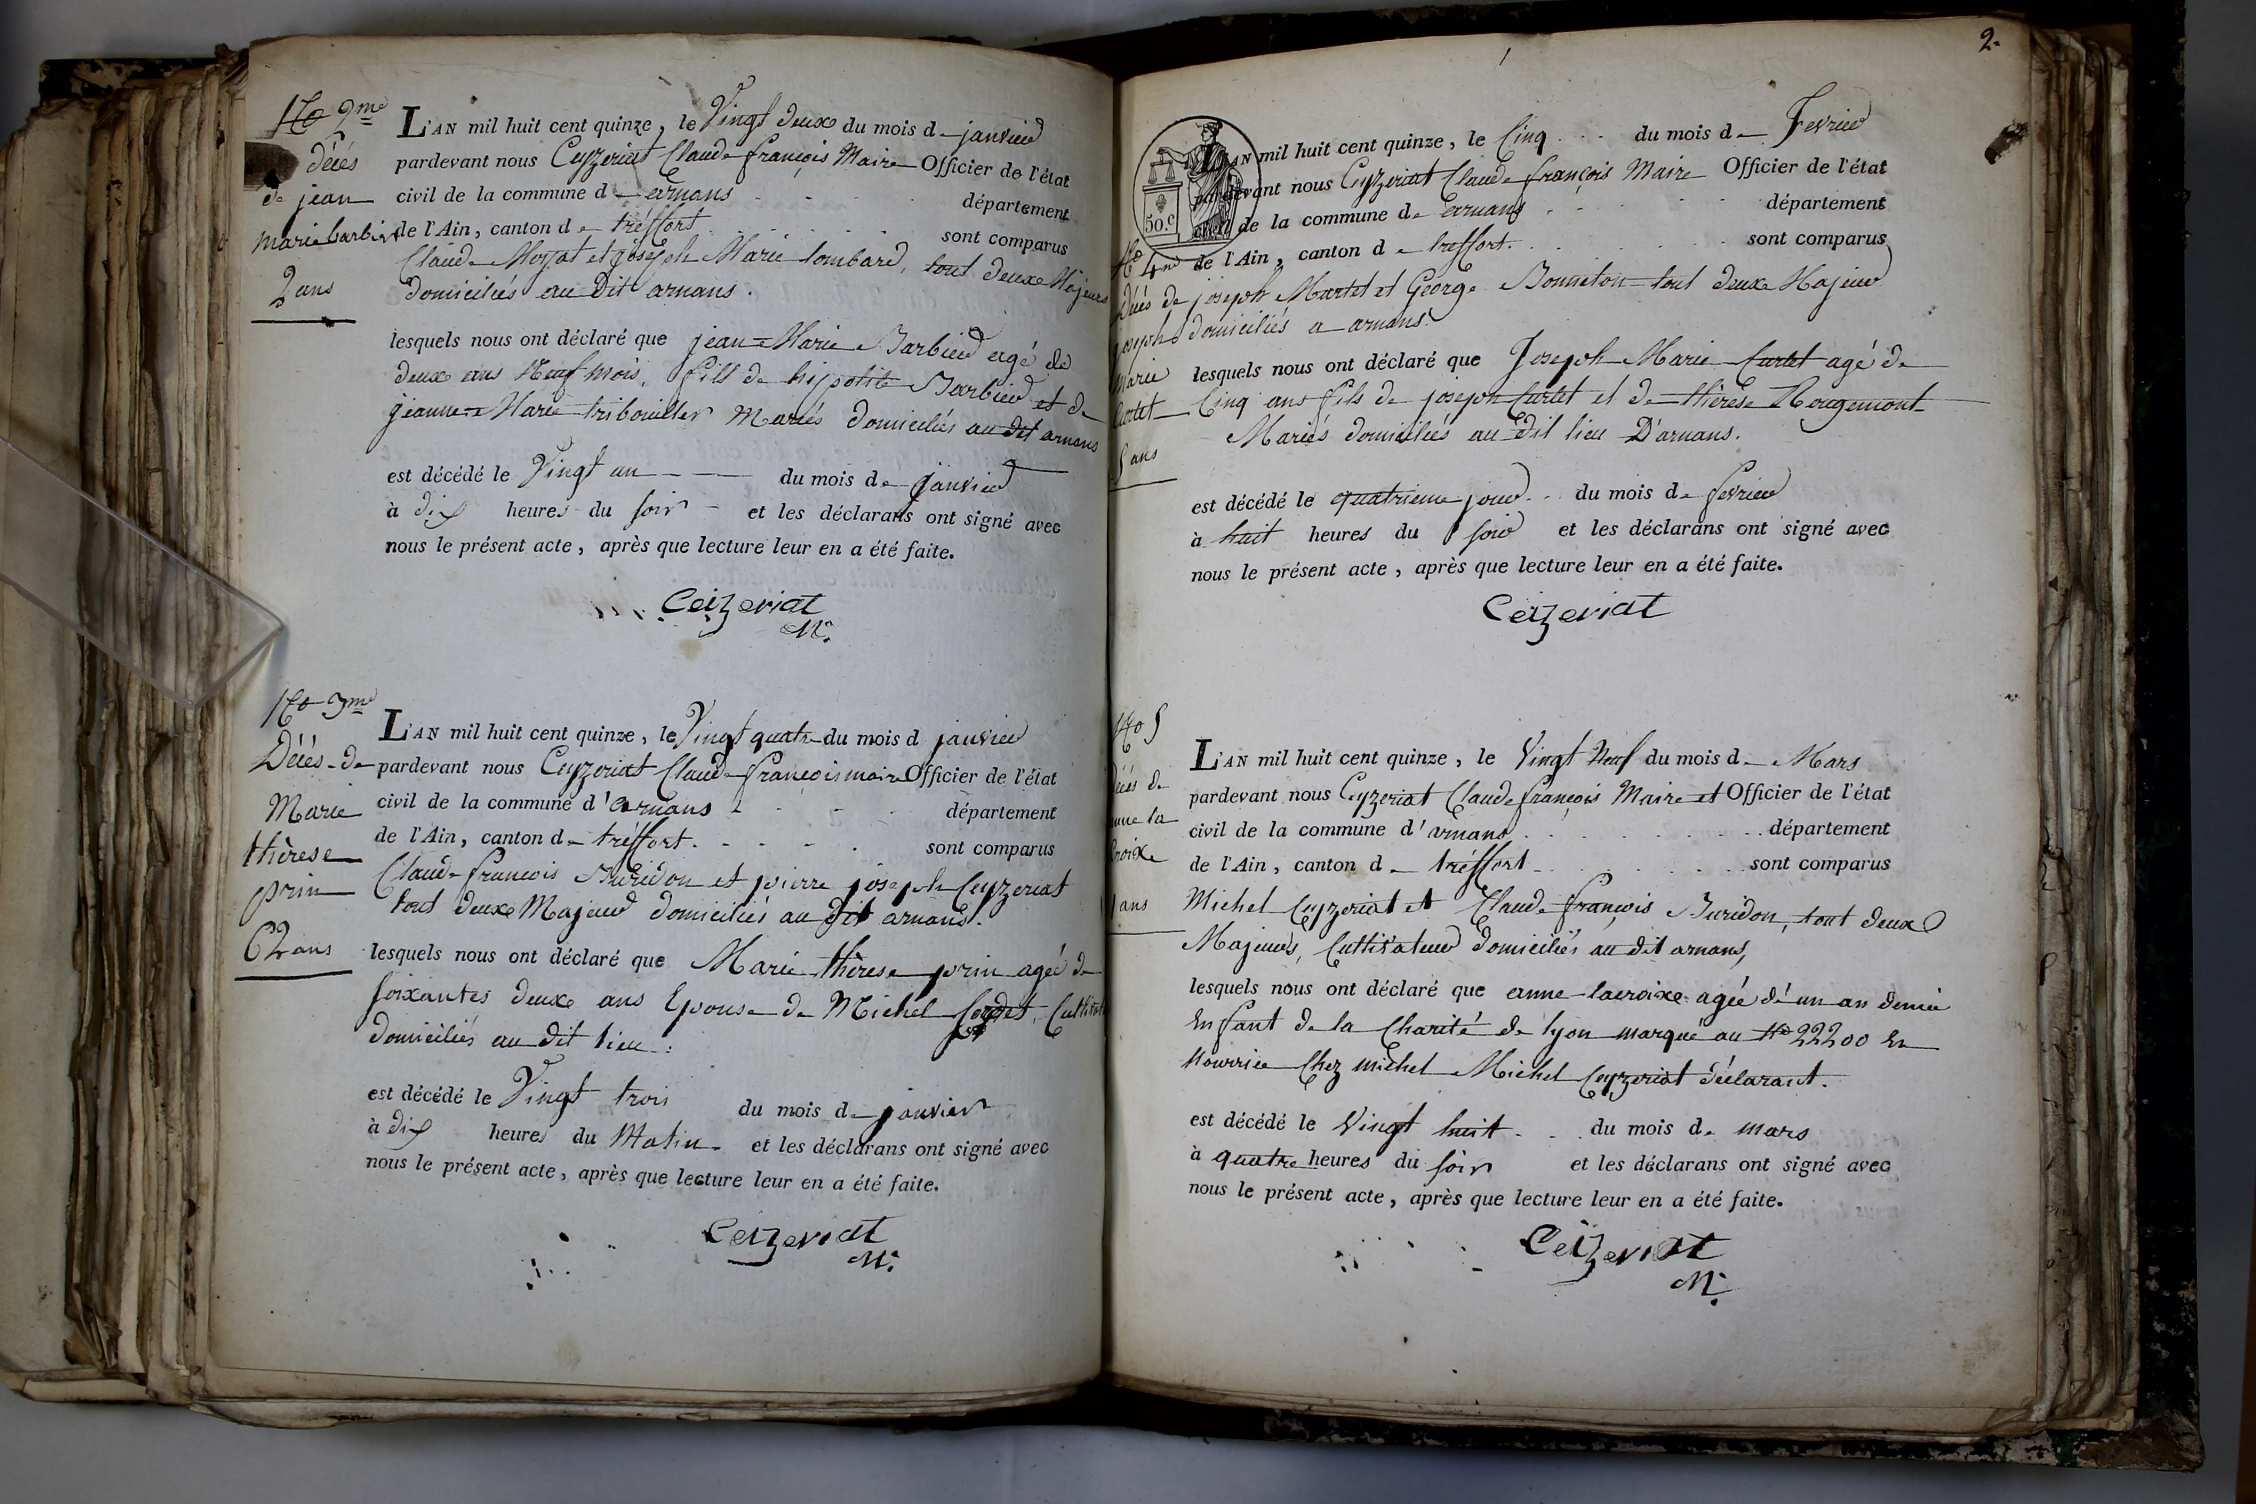 No 2me
décés
de jean
marie barbier
2 ans
L'AN mil huit cent quinze, le Vingt deux du mois de janvier
pardevant nous Ceyzeriat Claude françois Maire Officier de l'état
civil de la commune d arnans département
de l'Ain, canton de tréffort sont comparus
Claude Moyat et joseph Marie lombard, tout deux Majeurs
domiciliés au Dit arnans.
lesquels nous ont déclaré que jean-Marie Barbier agé de
deux ans Neuf mois, fils de hypolite Barbier et de
jeanne-Marie tribouiller Mariés domiciliés au dit arnans
est décédé le Vingt un du mois de janvier
à dix heures du soir et les déclarans ont signé avec
nous le présent acte, après que lecture leur en a été faite.
Ceizeriat
M.
No 3me
Décés de
Marie
thèrese
prin
62 ans
L'AN mil huit cent quinze, le Vingt quatre du mois d janvier
pardevant nous Ceyzeriat Claude françois maire Officier de l'état
civil de la commune d'arnans département
de l'Ain, canton de tréffort. sont comparus
Claude francois Buridon et pierre joseph Ceyzeriat
tout deux Majeur domiciliés au dit arnans.
lesquels nous ont déclaré que Marie thèrese prin agée de
soixantes deux ans Epouse de Michel
domiciliés au dit lieu.
est décédé le Vingt trois du mois de janvier
à dix heures du Matin et les déclarans ont signé avec
nous le présent acte, après que lecture leur en a été faite.
Ceizeriat
M.
2.
50.c
No 4me
Décés de
joseph
Marie
Curtet
5 ans
L'AN mil huit cent quinze, le Cinq du mois de Fevrier
pardevant nous Ceyzeriat Claude françois Maire Officier de l'état
civil de la commune de arnans département
de l'Ain, canton de treffort. sont comparus
joseph Martet et George Bonneton tout deux Majeur
domiciliés a arnans
lesquels nous ont déclaré que Joseph Marie Curtet agé de
Cinq ans fils de joseph Curtet et de thérèse Rougemont
Mariés domiciliés au dit lieu D'arnans.
est décédé le quatrieme jour du mois de fevrier
à huit heures du soir et les déclarans ont signé avec
nous le présent acte, après que lecture leur en a été faite.
Ceizeriat
No 5
décés de
anne la
Croixe
1 ans
L'AN mil huit cent quinze, le Vingt Neuf du mois de Mars
pardevant nous Ceyzeriat Claude françois Maire et Officier de l'état
civil de la commune d'arnans département
de l'Ain, canton de tréffort sont comparus
Michel Ceyzeriat et Claude françois Buridon, tout deux
Majeurs, Cultivateur domiciliés au dit arnans,
lesquels nous ont déclaré que anne lacroixe agée d'un an demie
Enfant de la Charité de lyon marqué au No 22200 En
Nourrice Chez michel Michel Ceyzeriat déclarant.
est décédé le Vingt huit du mois de mars
à quatre heures du soir et les déclarans ont signé avec
nous le présent acte, après que lecture leur en a été faite.
Ceizeriat
M.